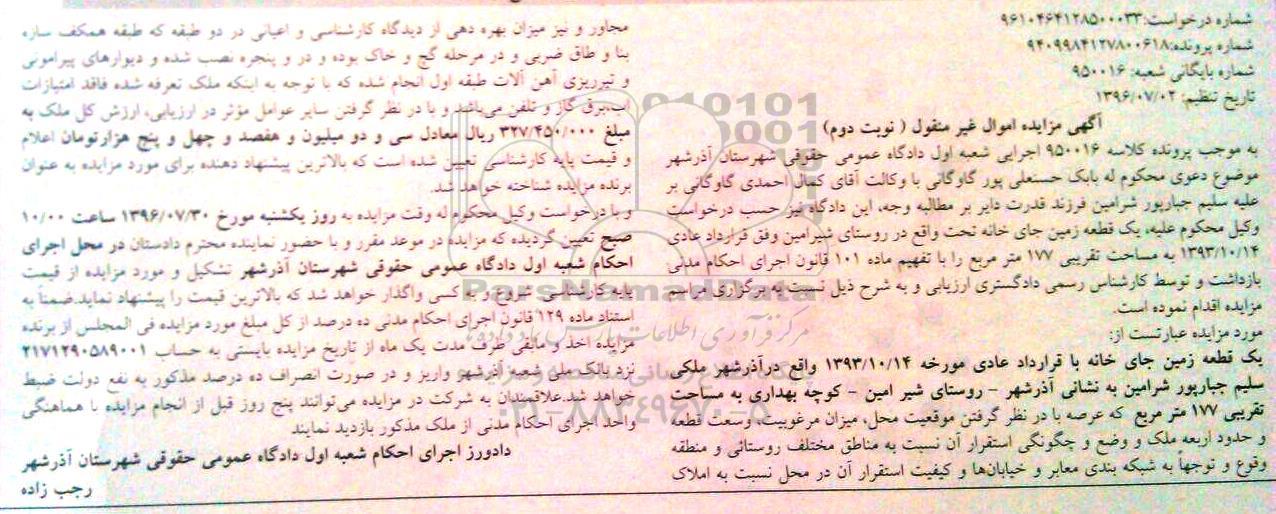 شماره درخواست:۹۶۱۰۴۶۴۱۲۸۵۰۰۰۳۳
شماره پرونده:۹۴۰۹۹۸۴۱۲۷۸۰۰۶۱۸
شماره بایگانی شعبه: ۹۵۰۰۱۶
تاریخ تنظیم: ۱۳۹۶/۰۷/۰۲
آگهی مزایده اموال غیر منقول ( نوبت دوم)
به موجب پرونده کلاسه ۹۵۰۰۱۶ اجرایی شعبه اول دادگاه عمومی حقوقی شهرستان آذرشهر
موضوع دعوی محکوم له بابک حسنعلی پور گاوگانی با وکالت آقای کمال احمدی گاوگانی بر
علیه سلیم جبارپور شرامین فرزند قدرت دایر بر مطالبه وجه، این دادگاه نیز حسب درخواست
وکیل محکوم علیه، یک قطعه زمین جای خانه تحت واقع در روستای شیرامین وفق قرارداد عادی
۱۳۹۳/۱۰/۱۴ به مساحت تقریبی ۱۷۷ متر مربع را با تفهیم ماده ۱۰۱ قانون اجرای احکام مدنی
بازداشت و توسط کارشناس رسمی دادگستری ارزیابی و به شرح ذیل نسبت به برگزاری مراسم
مزایده اقدام نموده است.
مورد مزایده عبارتست از:
یک قطعه زمین جای خانه با قرارداد عادی مورخه ۱۳۹۳/۱۰/۱۴ واقع درآذرشهر ملکی
سلیم جبارپور شرامین به نشانی آذرشهر - روستای شیر امین - کوچه بهداری به مساحت
تقریبی ۱۷۷ متر مربع که عرصه با در نظر گرفتن موقعیت محل، میزان مرغوبیت، وسعت قطعه
و حدود اربعه ملک و وضع و چگونگی استقرار آن نسبت به مناطق مختلف روستائی و منطقه
وقوع و توجهاً به شبکه بندی معابر و خیابان‌ها و کیفیت استقرار آن در محل نسبت به املاک
مجاور و نیز میزان بهره دهی از دیدگاه کارشناسی و اعیانی در دو طبقه که طبقه همکف سازه
بنا و طاق ضربی و در مرحله گچ و خاک بوده و در و پنجره نصب شده و دیوارهای پیرامونی
و تیرریزی آهن آلات طبقه اول انجام شده که با توجه به اینکه ملک تعرفه شده فاقد امتیازات
آب،برق گاز و تلفن می‌باشد و با در نظر گرفتن سایر عوامل مؤثر در ارزیابی، ارزش کل ملک به
مبلغ ۳۲۷/۴۵۰/۰۰۰ ریال معادل سی و دو میلیون و هفصد و چهل و پنج هزارتومان اعلام
و قیمت پایه کارشناسی تعیین شده است که بالاترین پیشنهاد دهنده برای مورد مزایده به عنوان
برنده مزایده شناخته خواهد شد.
و با درخواست وکیل محکوم له وقت مزایده به روز یکشنبه مورخ ۱۳۹۶/۰۷/۳۰ ساعت ۱۰/۰۰
صبح تعیین گردیده که مزایده در موعد مقرر و با حضور نماینده محترم دادستان در محل اجرای
احکام شعبه اول دادگاه عمومی حقوقی شهرستان آذرشهر تشکیل و مورد مزایده از قیمت
پایه کارشناسی شروع و به کسی واگذار خواهد شد که بالاترین قیمت را پیشنهاد نماید.ضمناً به
استناد ماده ۱۲۹ قانون اجرای احکام مدنی ده درصد از کل مبلغ مورد مزایده فی المجلس از برنده
مزایده اخذ و مابقی ظرف مدت یک ماه از تاریخ مزایده بایستی به حساب ۲۱۷۱۲۹۰۵۸۹۰۰۱
نزد بانک ملی شعبه آذرشهر واریز و در صورت انصراف ده درصد مذکور به نفع دولت ضبط
خواهد شد.علاقمندان به شرکت در مزایده می‌توانند پنج روز قبل از انجام مزایده با هماهنگی
واحد اجرای احکام مدنی از ملک مذکور بازدید نمایند
دادورز اجرای احکام شعبه اول دادگاه عمومی حقوقی شهرستان آذرشهر
رجب زاده
ParsNamadData
مرکز فرآوری اطلاعات پارس نماد داده ها
۰۲۱-۸۸۳۴۹۶۷۰-۵